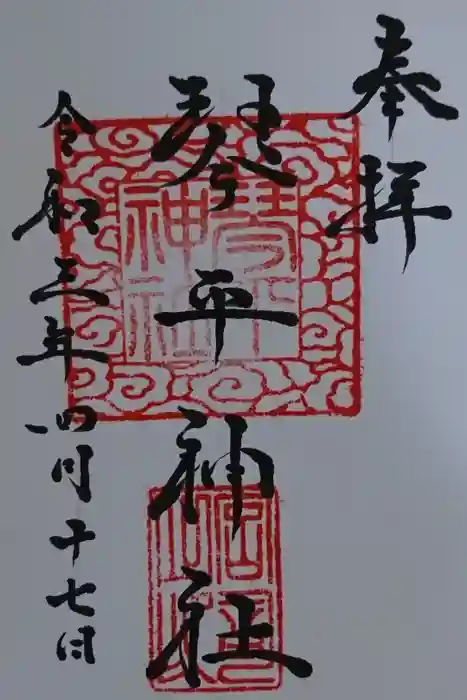 奉拝
琴平神社
令和三年四月十七日
琴平神社